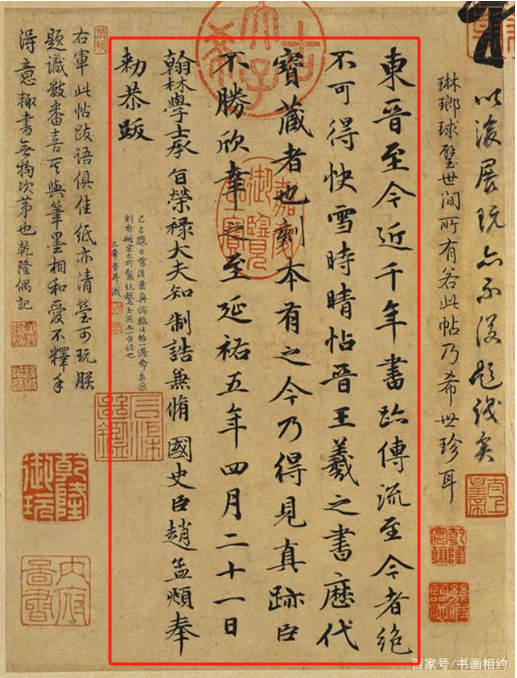 以後展玩亦不復題識矣
琳瑯球璧世間所有若此帖乃希世珍耳
東晉至今近千年書跡傳流至今者絕
不可得快雪時晴帖晉王羲之書歷代
寶藏者也刻本有之今乃得見真跡臣
不勝欣幸之至延祐五年四月二十一日
翰林學士承旨榮祿大夫知制誥兼脩國史臣趙孟頫奉
勑恭跋
右軍此帖跋語俱佳紙亦清瑩可玩朕
題識數番喜其與筆墨相和愛不釋手
得意輒書無拘次第也乾隆偶記
古希天子
嘉慶御覽之寶
三希堂精鑑璽
乾隆御玩
乾隆宸翰
百家号/书画相约